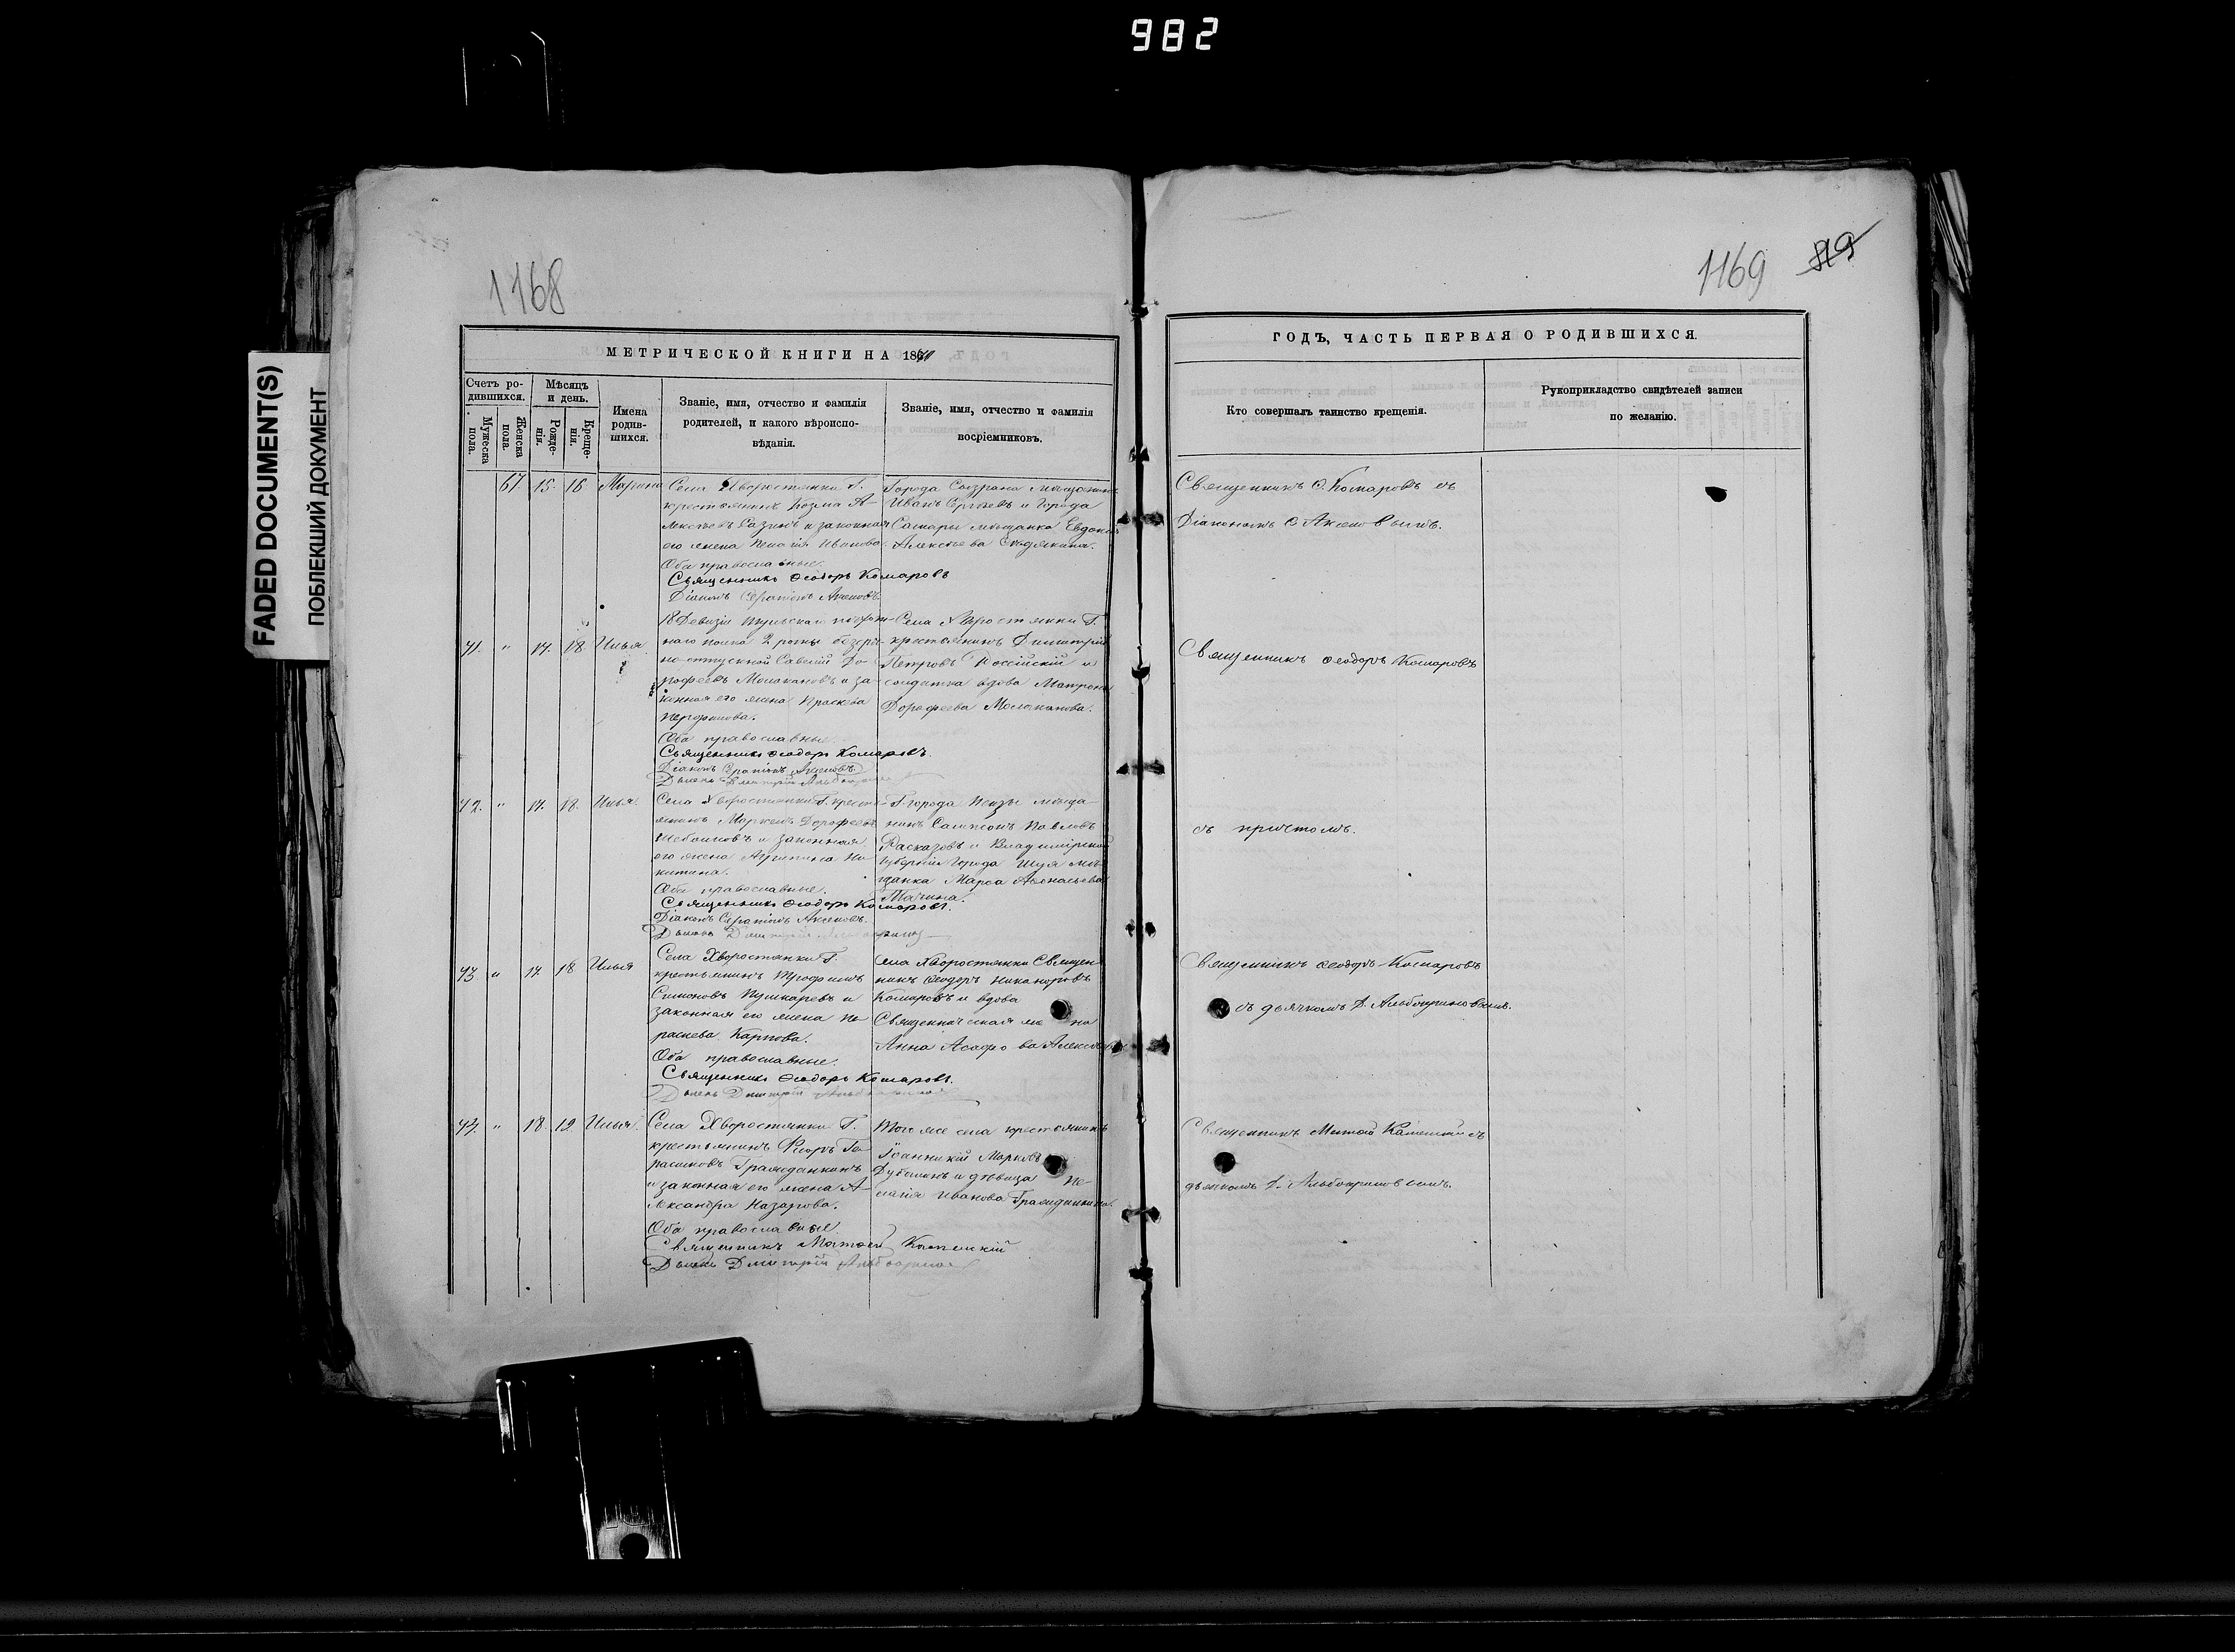 982
FADED DOCUMENT(S)
ПОБЛЕКШИЙ ДОКУМЕНТ
1168
МЕТРИЧЕСКОЙ КНИГИ НА 18
Счетъ ро-
дившихся.
Мужеска пола.
Женска пола.
Мѣсяцъ
и день.
Рожде-
нія.
Креще-
нія.
Имена
родив-
шихся.
Званіе, имя, отчество и фамилія
родителей, и какого вѣроиспо-
вѣданія.
Званіе, имя, отчество и фамилія
воспріемниковъ.
67. 15. 16 Марина
Села Хворостянки Г.
крестьянинъ Козма А-
лексѣевъ и законная
его жена Иванова.
Оба православные.
Священникъ Ѳеодоръ Комаровъ
Діаконъ Серапіонъ Аксеновъ.
Города Сызрани мѣщанинъ
Иванъ Сергѣевъ и города
Самары мѣщанка Евдокія
Алексѣева
41. " 17. 18. Илья
18 Дивизіи
наго полка 2 роты безсро-
чно-отпускной Савелій До-
рофеевъ Молокановъ и за-
конная его жена
Оба православные.
Священникъ Ѳеодоръ Комаровъ.
Діаконъ Серапіонъ Аксеновъ.
Села Хворостянки Г.
крестьянинъ Димитрій
Петровъ Россійскій и
солдатка вдова Матрона
Дорофеева Молоканова.
42. " 17. 18. Илья
Села Хворостянки Г. кресть-
янинъ Маркелъ Дорофеевъ
и законная
его жена Агрипина Ни-
китина.
Оба православные.
Священникъ Ѳеодоръ Комаровъ.
Діаконъ Серапіонъ Аксеновъ.
Города Пензы мѣща-
нинъ Сампсонъ Павловъ
Расказовъ и Владимірской
губерніи города Шуя мѣ-
щанка Марѳа Аѳонасьева
43 " 17 18 Илья
Села Хворостянки Г.
крестьянинъ Трофимъ
Симоновъ Пушкаревъ и
законная его жена Па-
раскева Карпова.
Оба православные.
Священникъ Ѳеодоръ Комаровъ.
Села Хворостянки Священ-
никъ Ѳеодоръ Никаноровъ
Комаровъ и вдова
Священническая жена
Анна
44. " 18. 19. Илья.
Села Хворостянки Г.
крестьянинъ Ге-
расимовъ Гражданкинъ
и законная его жена А-
лександра Назарова.
Оба православные
Священникъ Матѳей Каменскій
Того же села крестьянинъ
Іоанникій Марковъ
и дѣвица Пе-
лагія Иванова Гражданкина.
1169
119
ГОДЪ, ЧАСТЬ ПЕРВАЯ О РОДИВШИХСЯ.
Кто совершалъ таинство крещенія.
Рукоприкладство свидѣтелей записи
по желанію.
Священникъ Ѳ. Комаровъ съ
Діакономъ С. Аксеновымъ.
Священникъ Ѳеодоръ Комаровъ
съ причтомъ.
Священникъ Ѳеодоръ Комаровъ
съ дьячкомъ Д. Альбокриновымъ.
Священникъ Матѳей Каменскій съ
дьячкомъ Д. Альбокриновымъ.